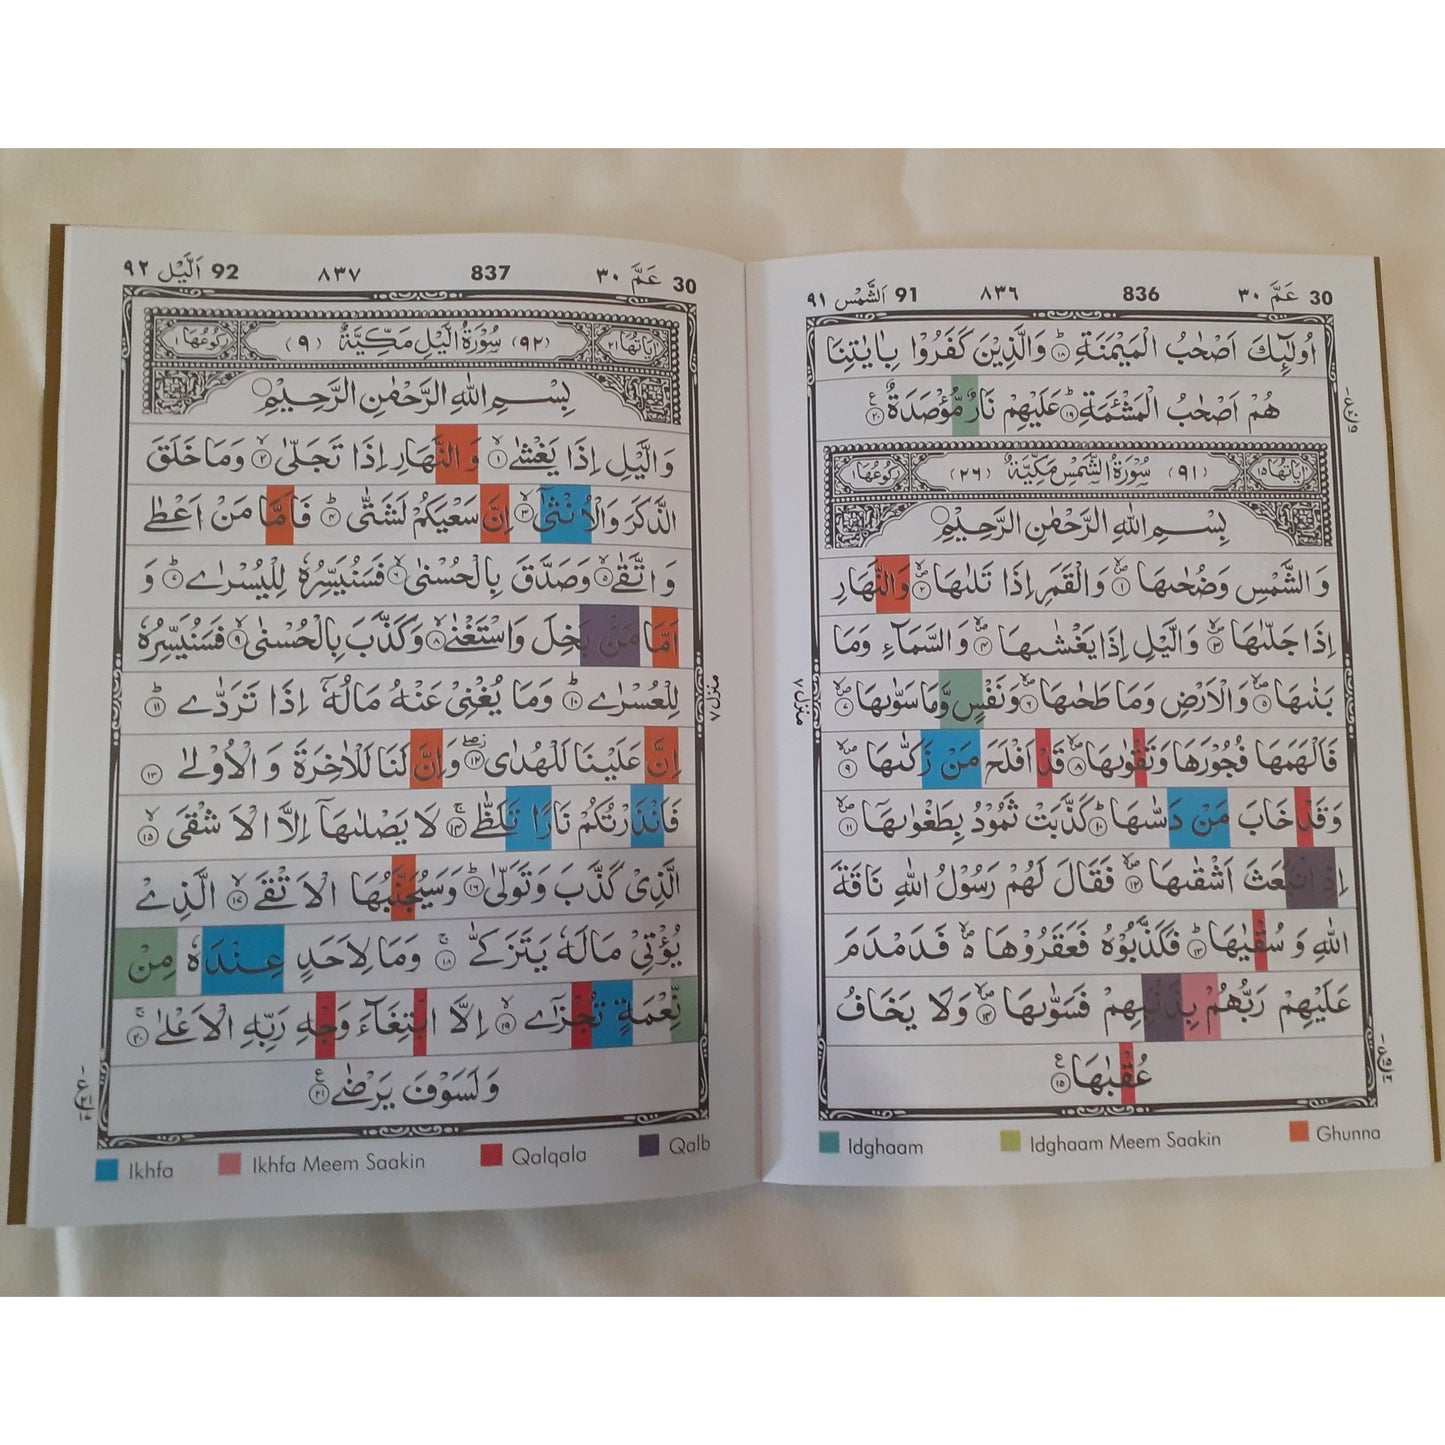 30 عَمَّ ٣٠ 836 ٨٣٦ 91 اَلشَّمْس ٩١
اُولٰٓئِكَ اَصْحٰبُ الْمَيْمَنَةِ ؕ‏ ١٨ وَالَّذِيْنَ كَفَرُوْا بِاٰيٰتِنَا
هُمْ اَصْحٰبُ الْمَشْئَمَةِ ؕ‏ ١٩ عَلَيْهِمْ نَارٌ مُّؤْصَدَةٌ ٢٠
اٰيَاتُهَا ١٥ (٩١) سُوْرَةُ الشَّمْسِ مَكِّيَّةٌ (٢٦) رُكُوْعُهَا ١
بِسْمِ اللّٰهِ الرَّحْمٰنِ الرَّحِيْمِ
وَالشَّمْسِ وَضُحٰىهَا ١ وَالْقَمَرِ اِذَا تَلٰىهَا ٢ وَالنَّهَارِ
اِذَا جَلّٰىهَا ٣ وَالَّيْلِ اِذَا يَغْشٰىهَا ٤ وَالسَّمَآءِ وَمَا
بَنٰىهَا ٥ وَالْاَرْضِ وَمَا طَحٰىهَا ٦ وَنَفْسٍ وَّمَا سَوّٰىهَا ٧
فَاَلْهَمَهَا فُجُوْرَهَا وَتَقْوٰىهَا ٨ قَدْ اَفْلَحَ مَنْ زَكّٰىهَا ٩
وَقَدْ خَابَ مَنْ دَسّٰىهَا ؕ ١٠ كَذَّبَتْ ثَمُوْدُ بِطَغْوٰىهَآ ١١
اِذِ انْۢبَعَثَ اَشْقٰىهَا ١٢ فَقَالَ لَهُمْ رَسُوْلُ اللّٰهِ نَاقَةَ
اللّٰهِ وَ سُقْيٰىهَا ؕ ١٣ فَكَذَّبُوْهُ فَعَقَرُوْهَا فَدَمْدَمَ
عَلَيْهِمْ رَبُّهُمْ بِذَنْۢبِهِمْ فَسَوّٰىهَا ١٤ وَلَا يَخَافُ
عُقْبٰىهَا ١٥
منزل ٧
Idghaam Idghaam Meem Saakin Ghunna
30 عَمَّ ٣٠ 837 ٨٣٧ 92 اَلَّيْل ٩٢
اٰيَاتُهَا ٢١ (٩٢) سُوْرَةُ الَّيْلِ مَكِّيَّةٌ (٩) رُكُوْعُهَا ١
بِسْمِ اللّٰهِ الرَّحْمٰنِ الرَّحِيْمِ
وَالَّيْلِ اِذَا يَغْشٰى ١ وَالنَّهَارِ اِذَا تَجَلّٰى ٢ وَمَا خَلَقَ
الذَّكَرَ وَالْاُنْثٰٓى ٣ اِنَّ سَعْيَكُمْ لَشَتّٰى ؕ ٤ فَاَمَّا مَنْ اَعْطٰى
وَ اتَّقٰى ٥ وَصَدَّقَ بِالْحُسْنٰى ٦ فَسَنُيَسِّرُهٗ لِلْيُسْرٰى ؕ ٧ وَ
اَمَّا مَنْۢ بَخِلَ وَاسْتَغْنٰى ٨ وَكَذَّبَ بِالْحُسْنٰى ٩ فَسَنُيَسِّرُهٗ
لِلْعُسْرٰى ؕ ١٠ وَمَا يُغْنِىْ عَنْهُ مَالُهٗٓ اِذَا تَرَدّٰى ؕ ١١
اِنَّ عَلَيْنَا لَلْهُدٰى ١٢ وَاِنَّ لَنَا لَلْاٰخِرَةَ وَ الْاُوْلٰى ١٣
فَاَنْذَرْتُكُمْ نَارًا تَلَظّٰى ١٤ لَا يَصْلٰىهَآ اِلَّا الْاَشْقَى ١٥
الَّذِىْ كَذَّبَ وَتَوَلّٰى ؕ ١٦ وَسَيُجَنَّبُهَا الْاَتْقَى ١٧ الَّذِىْ
يُؤْتِىْ مَالَهٗ يَتَزَكّٰى ١٨ وَمَا لِاَحَدٍ عِنْدَهٗ مِنْ
نِّعْمَةٍ تُجْزٰٓى ١٩ اِلَّا ابْتِغَآءَ وَجْهِ رَبِّهِ الْاَعْلٰى ٢٠
وَلَسَوْفَ يَرْضٰى ٢١
منزل ٧
Ikhfa Ikhfa Meem Saakin Qalqala Qalb